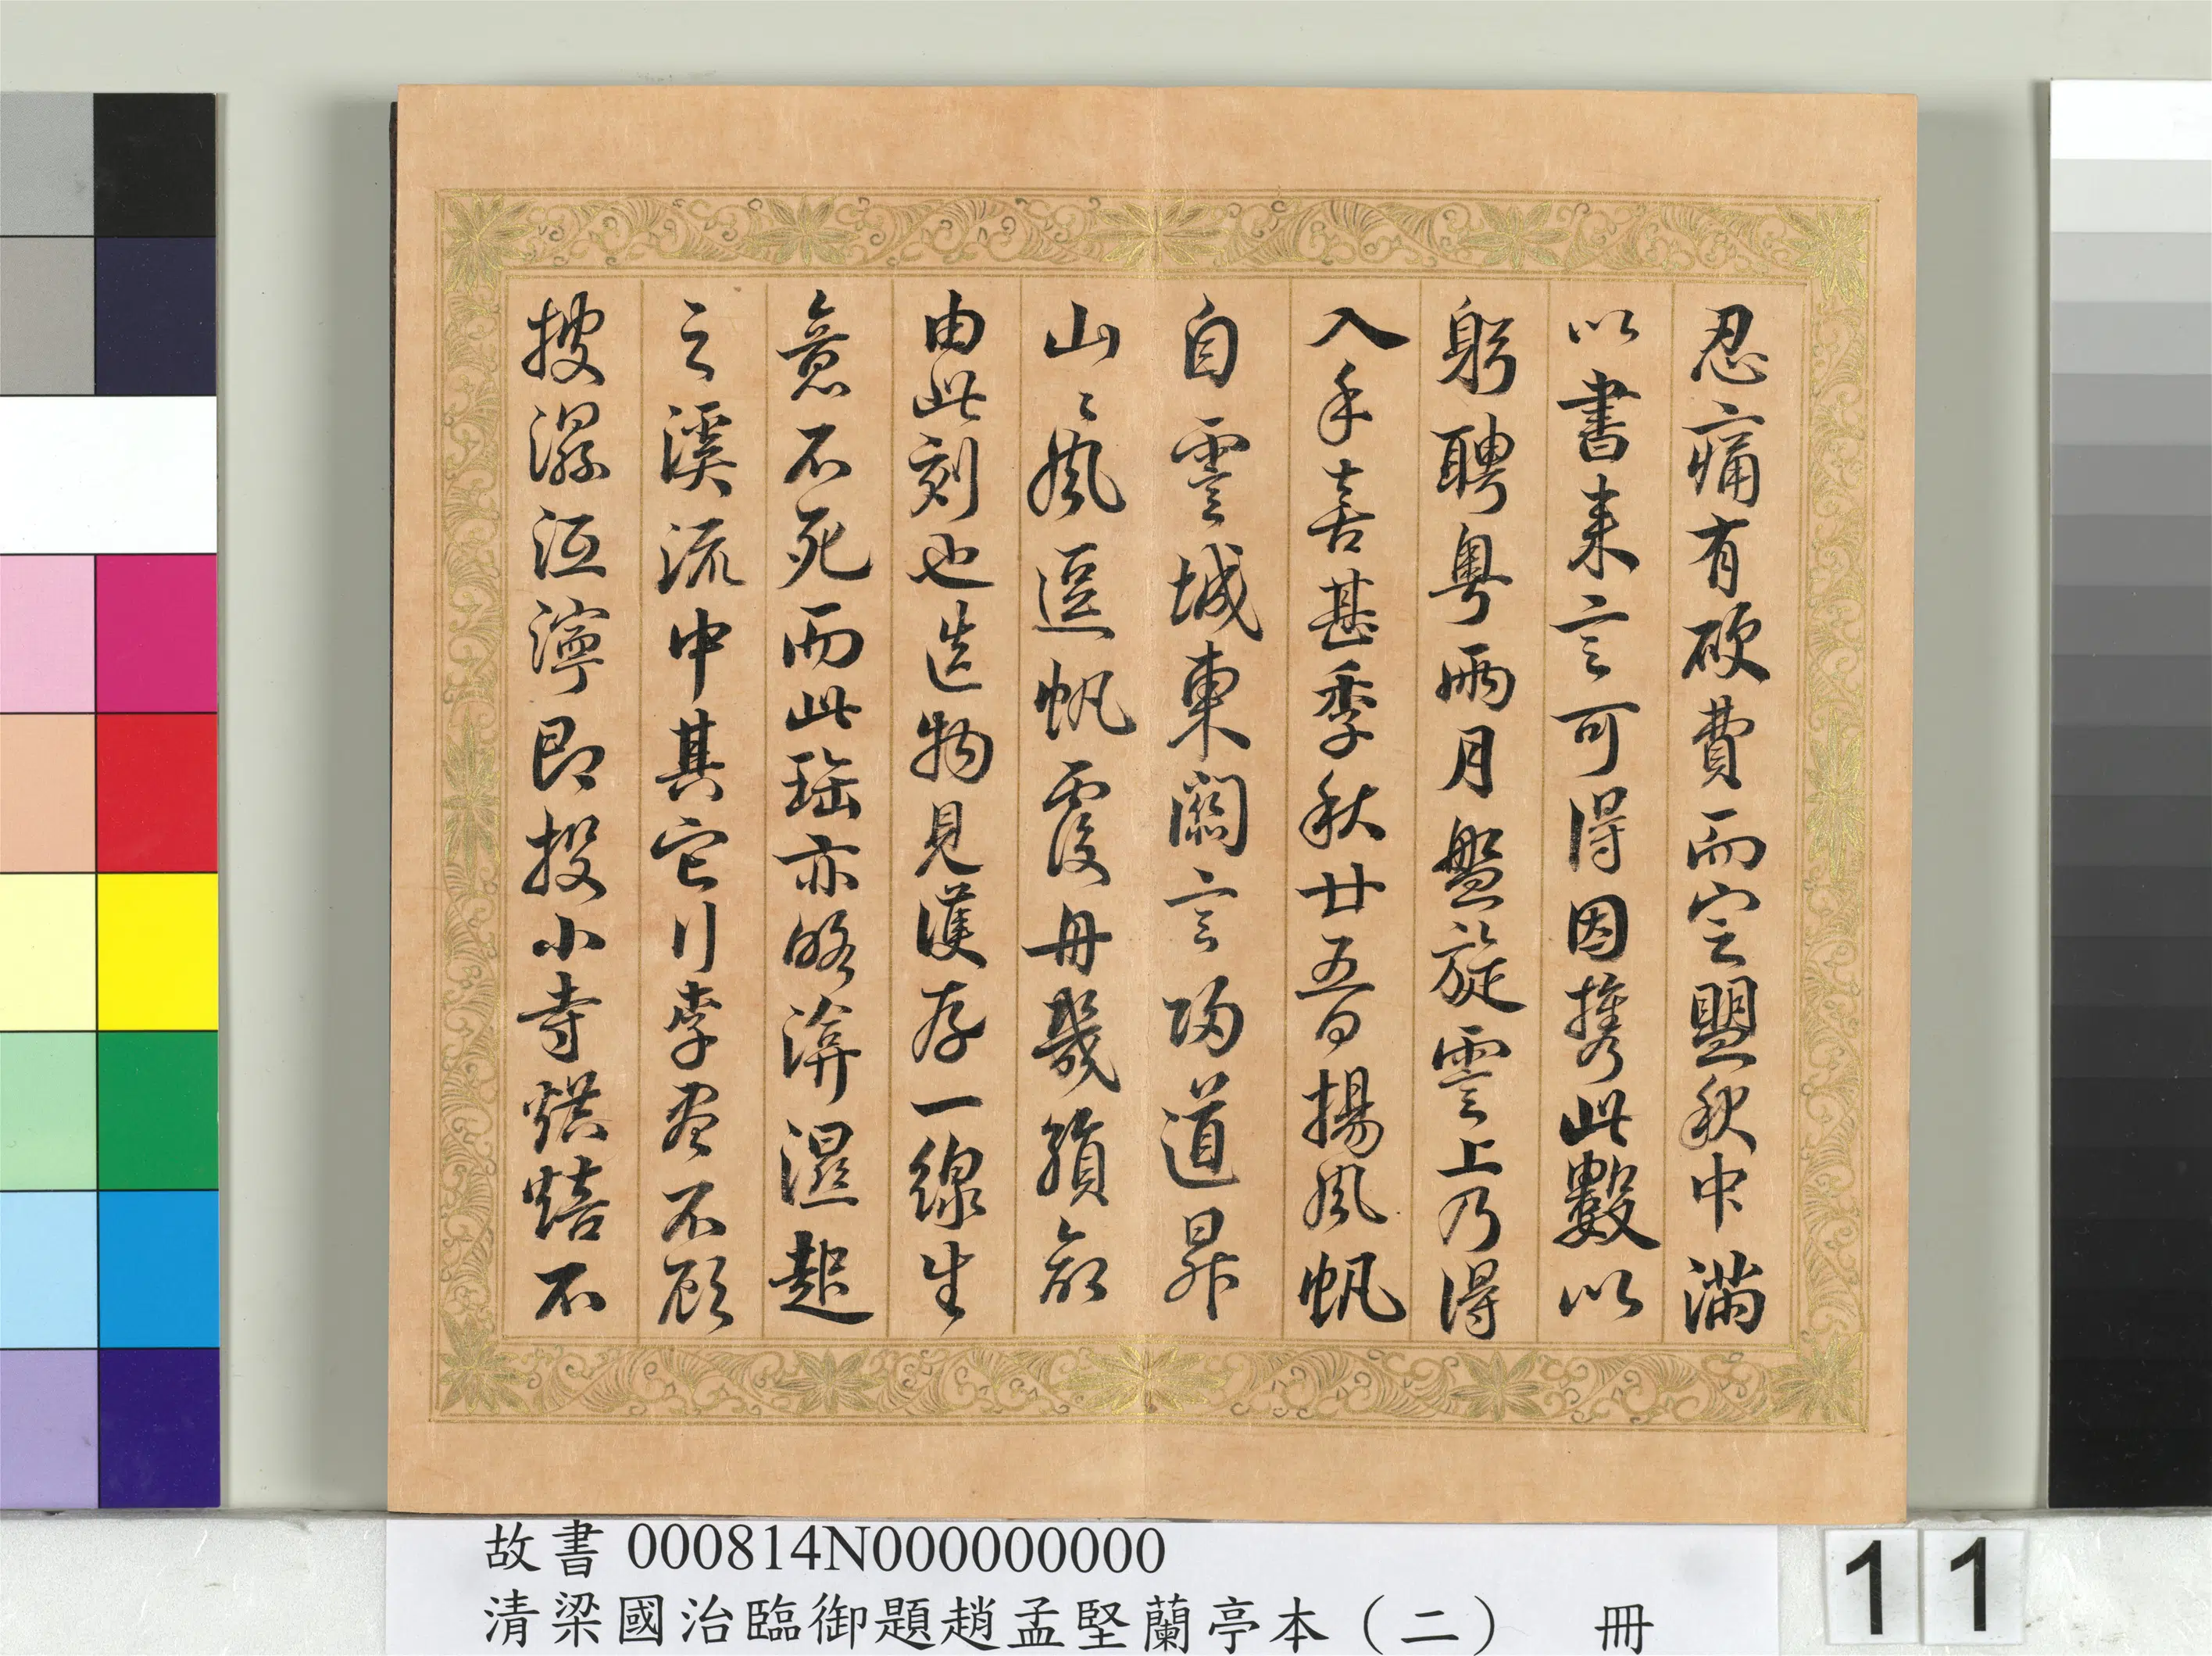 忍痛有破費而定盟秋中滿
以書来言可得因携此數以
躬聘粤兩月盤旋霅上乃得
入手喜甚季秋廿五日揚風帆
自霅城東關言歸道昇
山〻風逗帆覆舟幾殞命
由此刻也造物見護存一線生
意不死而此瑤亦略洴濕起
之溪流中其它行李盡不顧
搜濕泥濘即投小寺烘焙不
故書 000814N000000000
清梁國治臨御題趙孟堅蘭亭本（二） 冊
11